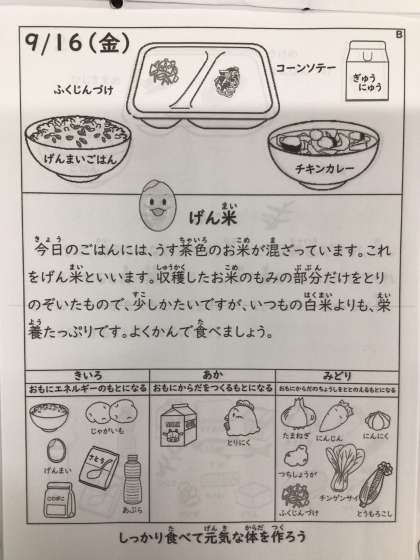 9/16(金)
B
ふくじんづけ
コーンソテー
ぎゅう
にゅう
げんまいごはん
チキンカレー
げん米
今日のごはんには、うす茶色のお米が混ざっています。これ
をげん米といいます。収穫したお米のもみの部分だけをとり
のぞいたもので、少しかたいですが、いつもの白米よりも、栄
養たっぷりです。よくかんで食べましょう。
きいろ
おもにエネルギーのもとになる
じゃがいも
げんまい
さとう
こむぎこ
あぶら
あか
おもにからだをつくるもとになる
とりにく
みどり
おもにからだのちょうしをととのえるもとになる
たまねぎ
にんじん
にんにく
つちしょうが
チンゲンサイ
ふくじんづけ
とうもろこし
しっかり食べて元気な体を作ろう